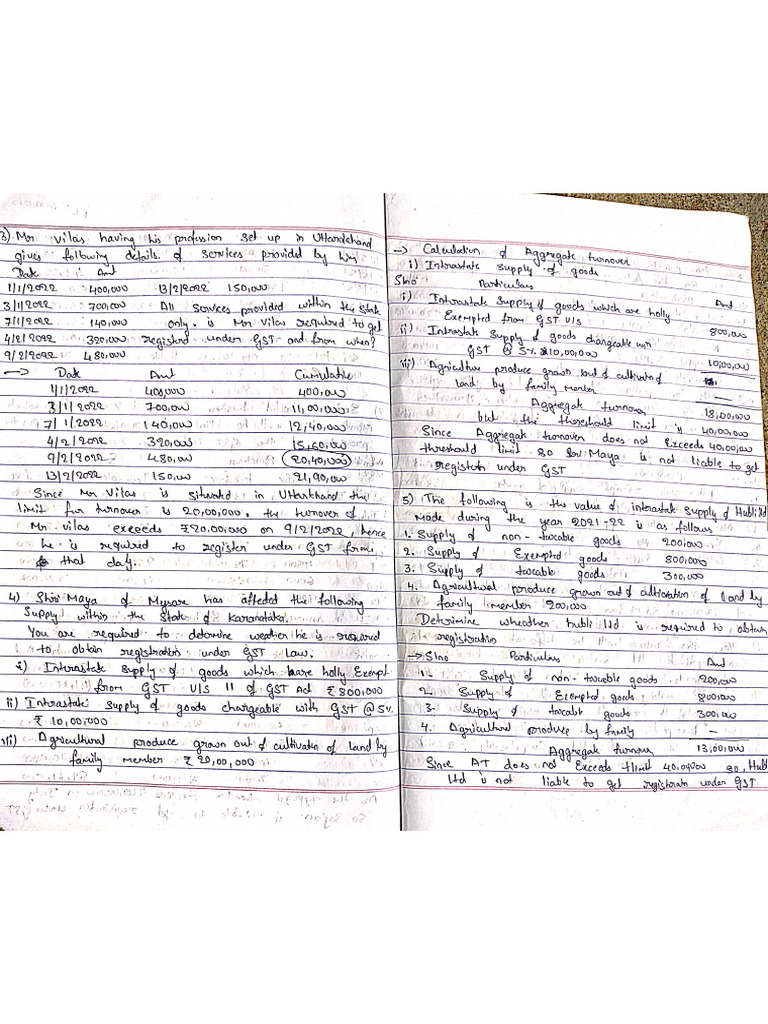 3) Mr Vilas having his profession set up in Uttarakhand
gives following details of services provided by him
Date Amt
1/1/2022 400,000 13/2/2022 150,000
3/1/2022 700,000 All services provided within the State
7/1/2022 140,000 only. is Mr Vilas required to get
4/2/2022 320,000 registered under GST and from when?
9/2/2022 480,000
→ Date Amt Cumulative
1/1/2022 400,000 400,000
3/1/2022 700,000 11,00,000
7/1/2022 140,000 12,40,000
4/2/2022 320,000 15,60,000
9/2/2022 480,000 20,40,000
13/2/2022 150,000 21,90,000
Since Mr Vilas is situated in Uttarkhand the
limit for turnover is 20,00,000. the turnover of
Mr. vilas exceeds ₹20,00,000 on 9/2/2022, hence
he is required to register under GST form
that day.
4) Shri Maya of Mysore has affected the following
Supply within the State of Karanataka.
You are required to determine weather he is required
to obtain registration under GST Law.
i) Intrastate supply of goods which are holly Exempt
from GST U/S 11 of GST Act ₹ 800,000
ii) Intrastate supply of goods chargeable with GST @ 5%
₹ 10,00,000
iii) Agricultural produce grown out of cultivation of land by
family member ₹ 20,00,000
→ Calculation of Aggregate turnover
i) Intrastate supply of goods
Slno Particulars Amt
i) Intrastate supply of goods which are holly
Exempted from GST U/S 800,000
ii) Intrastate supply of goods chargeable with
GST @ 5% 10,00,000 10,00,000
iii) Agriculture produce grown out of cultivation of
land by family member —
Aggregate turnover 18,00,000
but the threshould limit is 40,00,000
Since Aggregate turnover does not Exceeds 40,00,000
threshould limit so Sri Maya is not liable to get
registrain under GST
5) The following is the value of intrastate supply of Hubli ltd
Made during the year 2021-22 is as follows
1. Supply of non-taxable goods 200,000
2. Supply of Exempted goods 800,000
3. Supply of taxable goods 300,000
4. Agricultural produce grown out of cultivation of land by
family member 200,000
Determine wheather hubli ltd is required to obtain
registration
→ Slno Particulars Amt
1. Supply of non-taxable goods 200,000
2. Supply of Exempted goods 800,000
3. Supply of taxable goods 300,000
4. Agricultural produce by family —
Aggregate turnover 13,00,000
Since AT does not Exceeds limit 40,00,000 so, Hubli
ltd is not liable to get registrain under GST